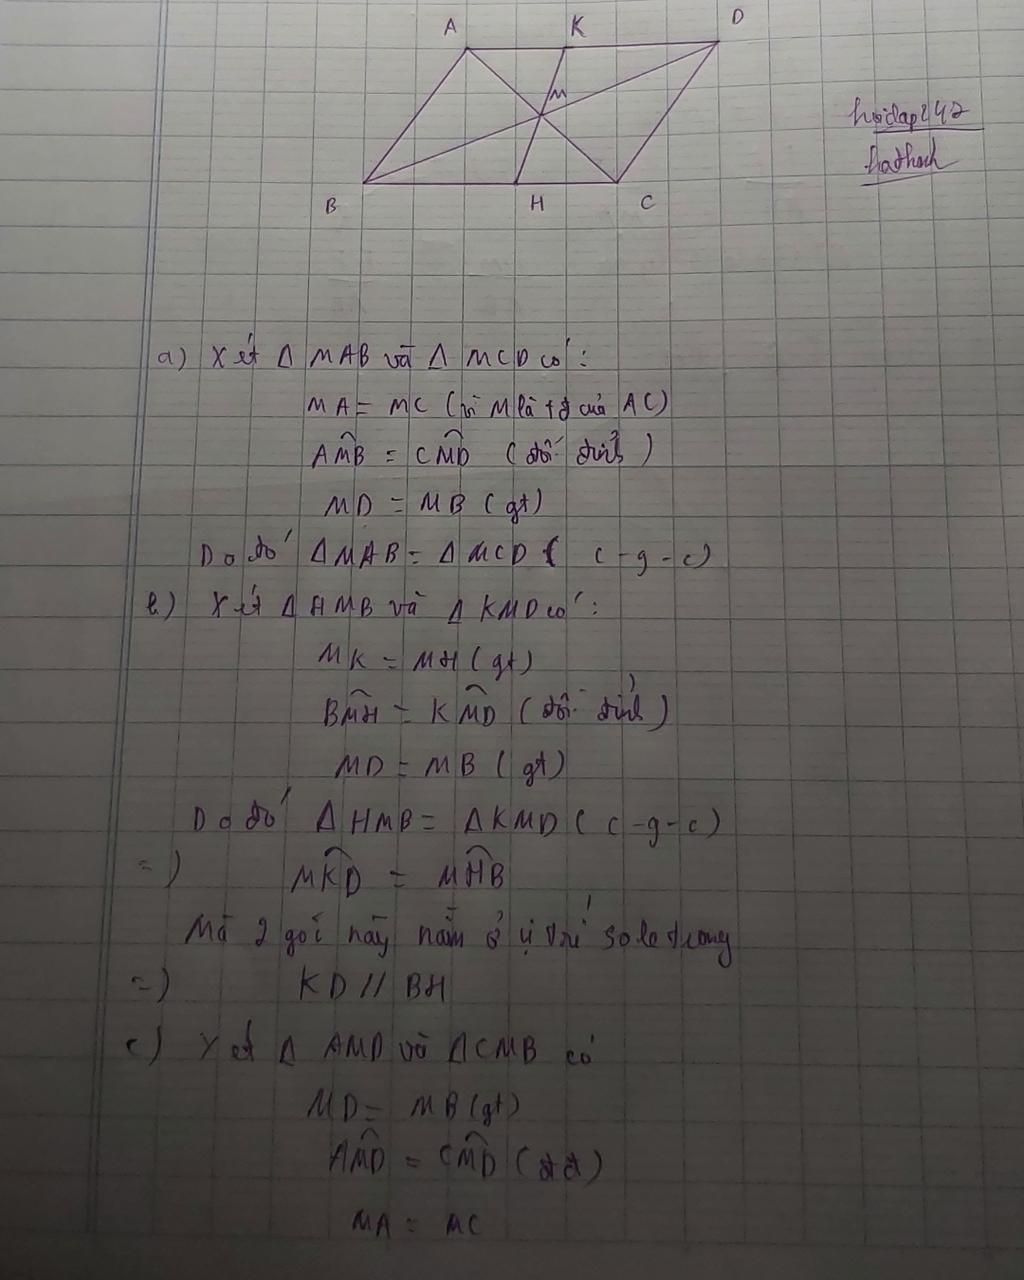 A K D
M
hoidap247
hathach
B H C
a) Xét Δ MAB và Δ MCD có:
MA = MC (vì M là tđ của AC)
AM̂B = CM̂D (đối đỉnh)
MD = MB (gt)
Do đó ΔMAB = ΔMCD (c-g-c)
b) Xét Δ HMB và Δ KMD có:
MK = MH (gt)
BM̂H = KM̂D (đối đỉnh)
MD = MB (gt)
Do đó ΔHMB = ΔKMD (c-g-c)
=) MK̂D = MĤB
Mà 2 gói này nằm ở vị trí so le trong
=) KD // BH
c) Xét Δ AMD và ΔCMB có
MD = MB (gt)
AM̂D = CM̂D (đđ)
MA = MC